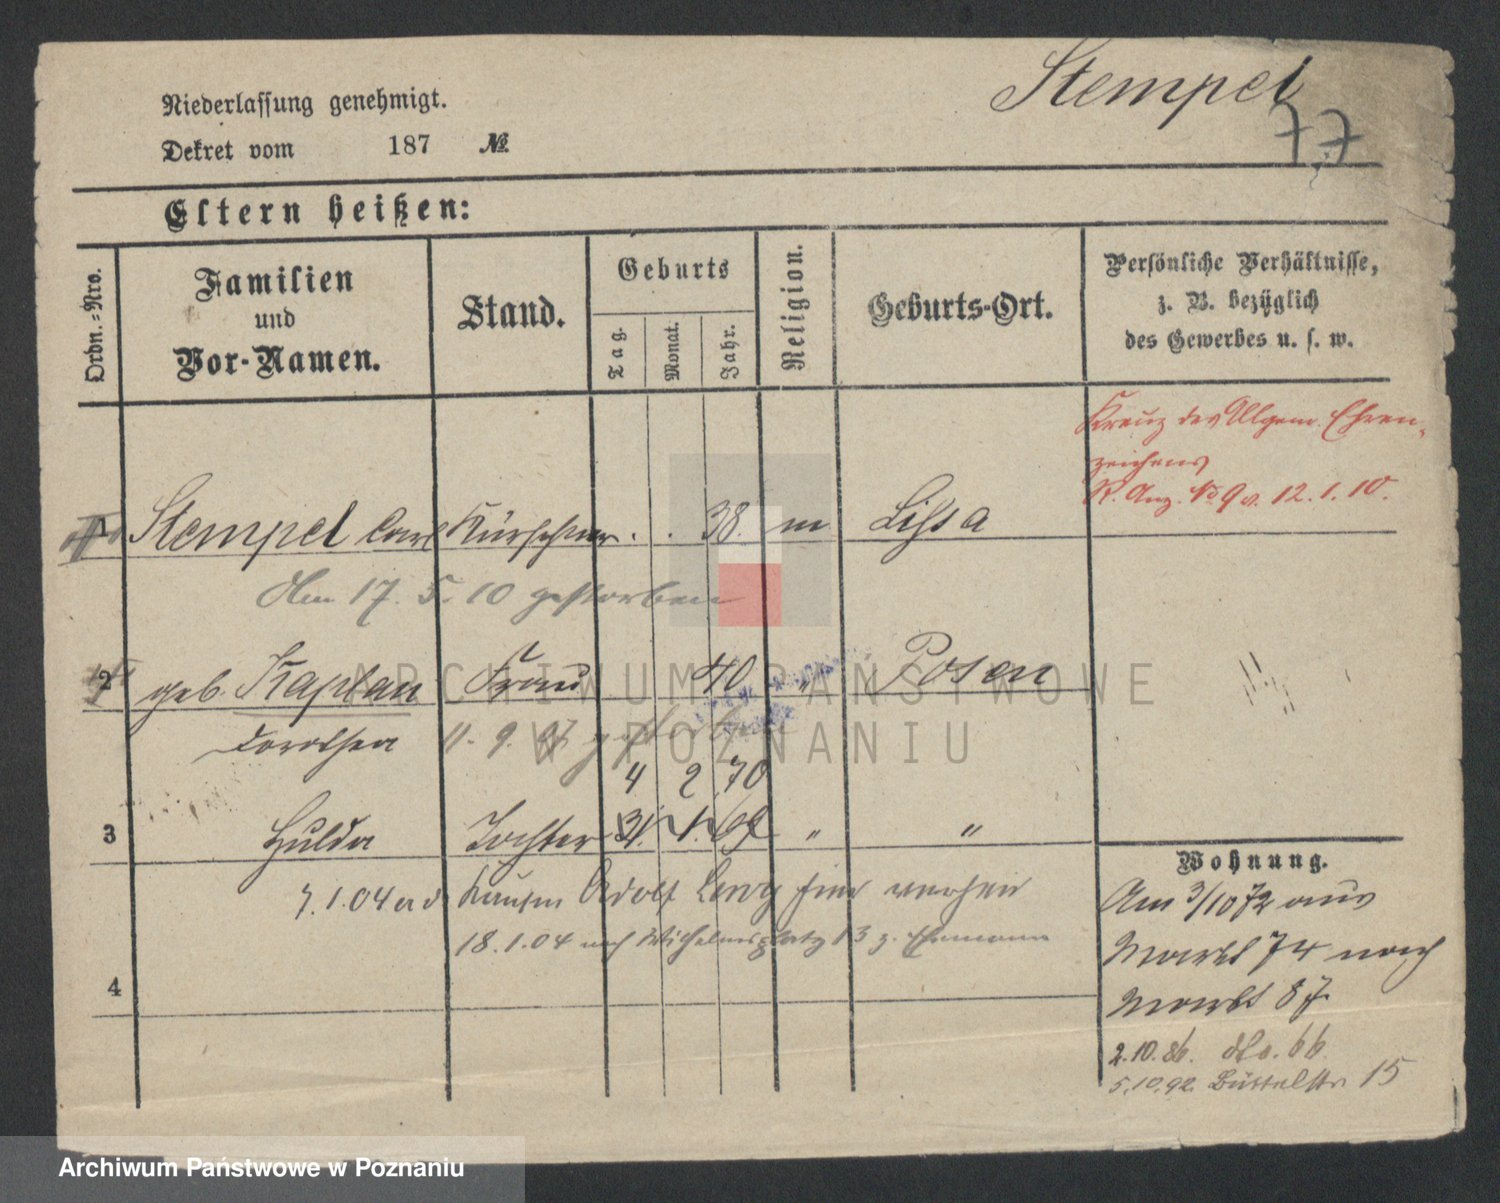 Stempel
77
Niederlassung genehmigt.
Dekret vom 187 №
Eltern heißen:
Ordn.-Nro.
Familien und Vor-Namen.
Stand.
Geburts
Tag.
Monat.
Jahr.
Religion.
Geburts-Ort.
Persönliche Verhältnisse,
z. B. bezüglich
des Gewerbes u. s. w.
Kreuz des Allgem. Ehren-
zeichens
R. Anz. No 9 v. 12.1.10.
1 Stempel Carl Kürschner . . 38. m Lissa
Am 17. 5. 10 gestorben
2 geb. Kaplan Frau 40 " Posen
Dorothea 11. 9. 07 gestorben
4 2 70
3 Hulda Tochter 31. 1. 69 " "
7.1.04 Kaufm Adolf Levy
18.1.04 nach Wilhelmsplatz 13 z. Ehemann
4
Wohnung.
Am 3/10 72 aus
Markt 74 nach
Markt 87
2.10.86. dto. 66
5.10.92. Büttelstr 15
ARCHIWUM PAŃSTWOWE
W POZNANIU
Archiwum Państwowe w Poznaniu